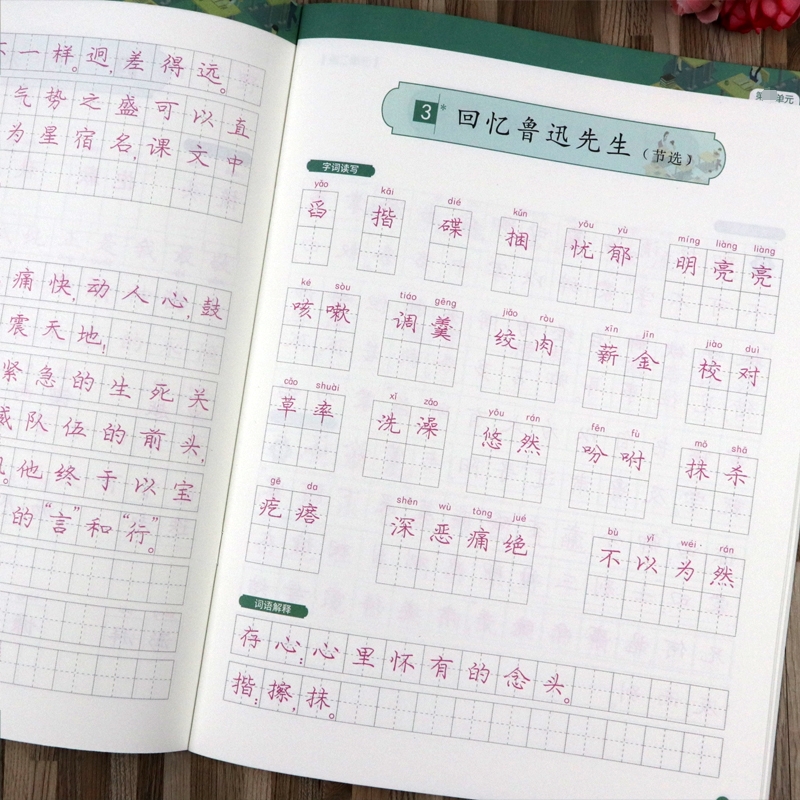 不一样。迥,差得远。
气势之盛可以直
为星宿名,课文中
痛快,动人心,鼓
震天地!
紧急的生死关
队伍的前头,
他终于以宝
的“言”和“行”。
单元
3* 回忆鲁迅先生(节选)
字词读写
yǎo kāi dié kǔn yōu yù míng liàng liàng
舀 揩 碟 捆 忧郁 明亮亮
ké sòu tiáo gēng jiǎo ròu xīn jīn jiào duì
咳嗽 调羹 绞肉 薪金 校对
cǎo shuài xǐ zǎo yōu rán fēn fù mǒ shā
草率 洗澡 悠然 吩咐 抹杀
gē da shēn wù tòng jué bù yǐ wéi rán
疙瘩 深恶痛绝 不以为然
词语解释
存心:心里怀有的念头。
揩:擦,抹。